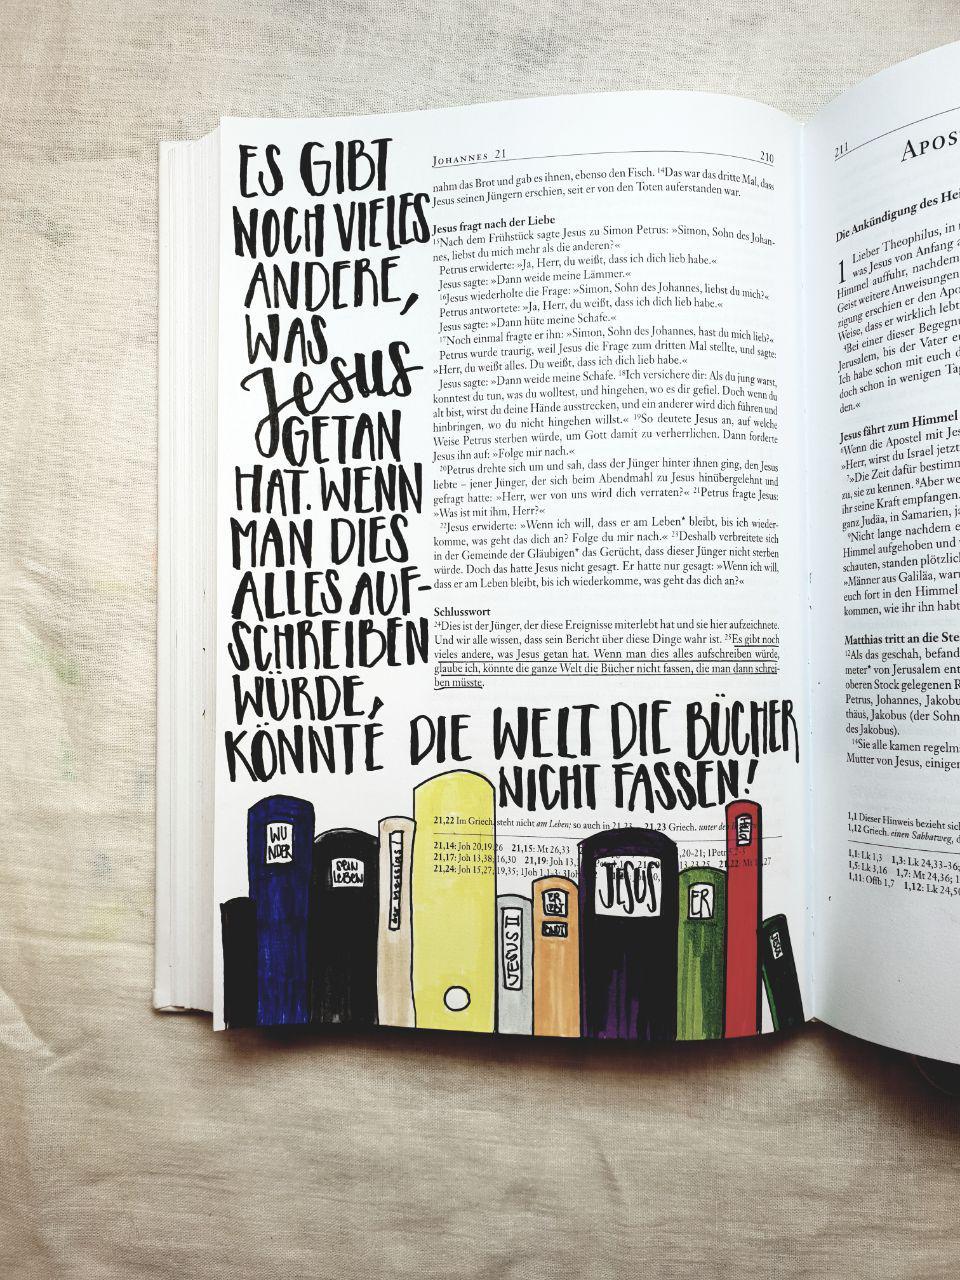 ES GIBT
NOCH VIELES
ANDERE,
WAS
Jesus
GETAN
HAT. WENN
MAN DIES
ALLES AUF-
SCHREIBEN
WÜRDE,
KÖNNTE DIE WELT DIE BÜCHER
NICHT FASSEN!
JOHANNES 21 210
nahm das Brot und gab es ihnen, ebenso den Fisch. 14Das war das dritte Mal, dass
Jesus seinen Jüngern erschien, seit er von den Toten auferstanden war.
Jesus fragt nach der Liebe
15Nach dem Frühstück sagte Jesus zu Simon Petrus: »Simon, Sohn des Johan-
nes, liebst du mich mehr als die anderen?«
Petrus erwiderte: »Ja, Herr, du weißt, dass ich dich lieb habe.«
Jesus sagte: »Dann weide meine Lämmer.«
16Jesus wiederholte die Frage: »Simon, Sohn des Johannes, liebst du mich?«
Petrus antwortete: »Ja, Herr, du weißt, dass ich dich lieb habe.«
Jesus sagte: »Dann hüte meine Schafe.«
17Noch einmal fragte er ihn: »Simon, Sohn des Johannes, hast du mich lieb?«
Petrus wurde traurig, weil Jesus die Frage zum dritten Mal stellte, und sagte:
»Herr, du weißt alles. Du weißt, dass ich dich lieb habe.«
Jesus sagte: »Dann weide meine Schafe. 18Ich versichere dir: Als du jung warst,
konntest du tun, was du wolltest, und hingehen, wo es dir gefiel. Doch wenn du
alt bist, wirst du deine Hände ausstrecken, und ein anderer wird dich führen und
hinbringen, wo du nicht hingehen willst.« 19So deutete Jesus an, auf welche
Weise Petrus sterben würde, um Gott damit zu verherrlichen. Dann forderte
Jesus ihn auf: »Folge mir nach.«
20Petrus drehte sich um und sah, dass der Jünger hinter ihnen ging, den Jesus
liebte – jener Jünger, der sich beim Abendmahl zu Jesus hinübergelehnt und
gefragt hatte: »Herr, wer von uns wird dich verraten?« 21Petrus fragte Jesus:
»Was ist mit ihm, Herr?«
22Jesus erwiderte: »Wenn ich will, dass er am Leben* bleibt, bis ich wieder-
komme, was geht das dich an? Folge du mir nach.« 23Deshalb verbreitete sich
in der Gemeinde der Gläubigen* das Gerücht, dass dieser Jünger nicht sterben
würde. Doch das hatte Jesus nicht gesagt. Er hatte nur gesagt: »Wenn ich will,
dass er am Leben bleibt, bis ich wiederkomme, was geht das dich an?«
Schlusswort
24Dies ist der Jünger, der diese Ereignisse miterlebt hat und sie hier aufzeichnete.
Und wir alle wissen, dass sein Bericht über diese Dinge wahr ist. 25Es gibt noch
vieles andere, was Jesus getan hat. Wenn man dies alles aufschreiben würde,
glaube ich, könnte die ganze Welt die Bücher nicht fassen, die man dann schrei-
ben müsste.
21,22 Im Griech. steht nicht am Leben; so auch in 21,23. 21,23 Griech. unter den
21,14: Joh 20,19.26 21,15: Mt 26,33
21,17: Joh 13,38; 16,30 21,19: Joh 13,
21,24: Joh 15,27; 19,35; 1Joh 1,1-3; 3Joh
,20-21; 1Petr 5,2-3
13,23.25 21,22: Mt
WU
NDER
sein
LEBEN
der
JESUS II
ER
LEBT
JESUS
ER
JESUS
211
APOS
Die Ankündigung des Hei
1 Lieber Theophilus, in
was Jesus von Anfang a
Himmel auffuhr, nachdem
Geist weitere Anweisungen
zigung erschien er den Apo
Weise, dass er wirklich lebt
4Bei einer dieser Begegnu
Jerusalem, bis der Vater eu
Ich habe schon mit euch d
doch schon in wenigen Tag
den.«
Jesus fährt zum Himmel
6Wenn die Apostel mit Jes
»Herr, wirst du Israel jetzt
7»Die Zeit dafür bestimm
zu, sie zu kennen. 8Aber we
ihr seine Kraft empfangen.
ganz Judäa, in Samarien, ja
9Nicht lange nachdem e
Himmel aufgehoben und
schauten, standen plötzlich
»Männer aus Galiläa, waru
euch fort in den Himmel
kommen, wie ihr ihn habt
Matthias tritt an die Ste
12Als das geschah, befand
meter* von Jerusalem ent
oberen Stock gelegenen R
Petrus, Johannes, Jakobu
thäus, Jakobus (der Sohn
des Jakobus).
14Sie alle kamen regelm
Mutter von Jesus, einigen
1,1 Dieser Hinweis bezieht sich
1,12 Griech. einen Sabbatweg, d
1,1: Lk 1,3 1,3: Lk 24,33-36;
1,5: Lk 3,16 1,7: Mt 24,36; 1
1,11: Offb 1,7 1,12: Lk 24,50